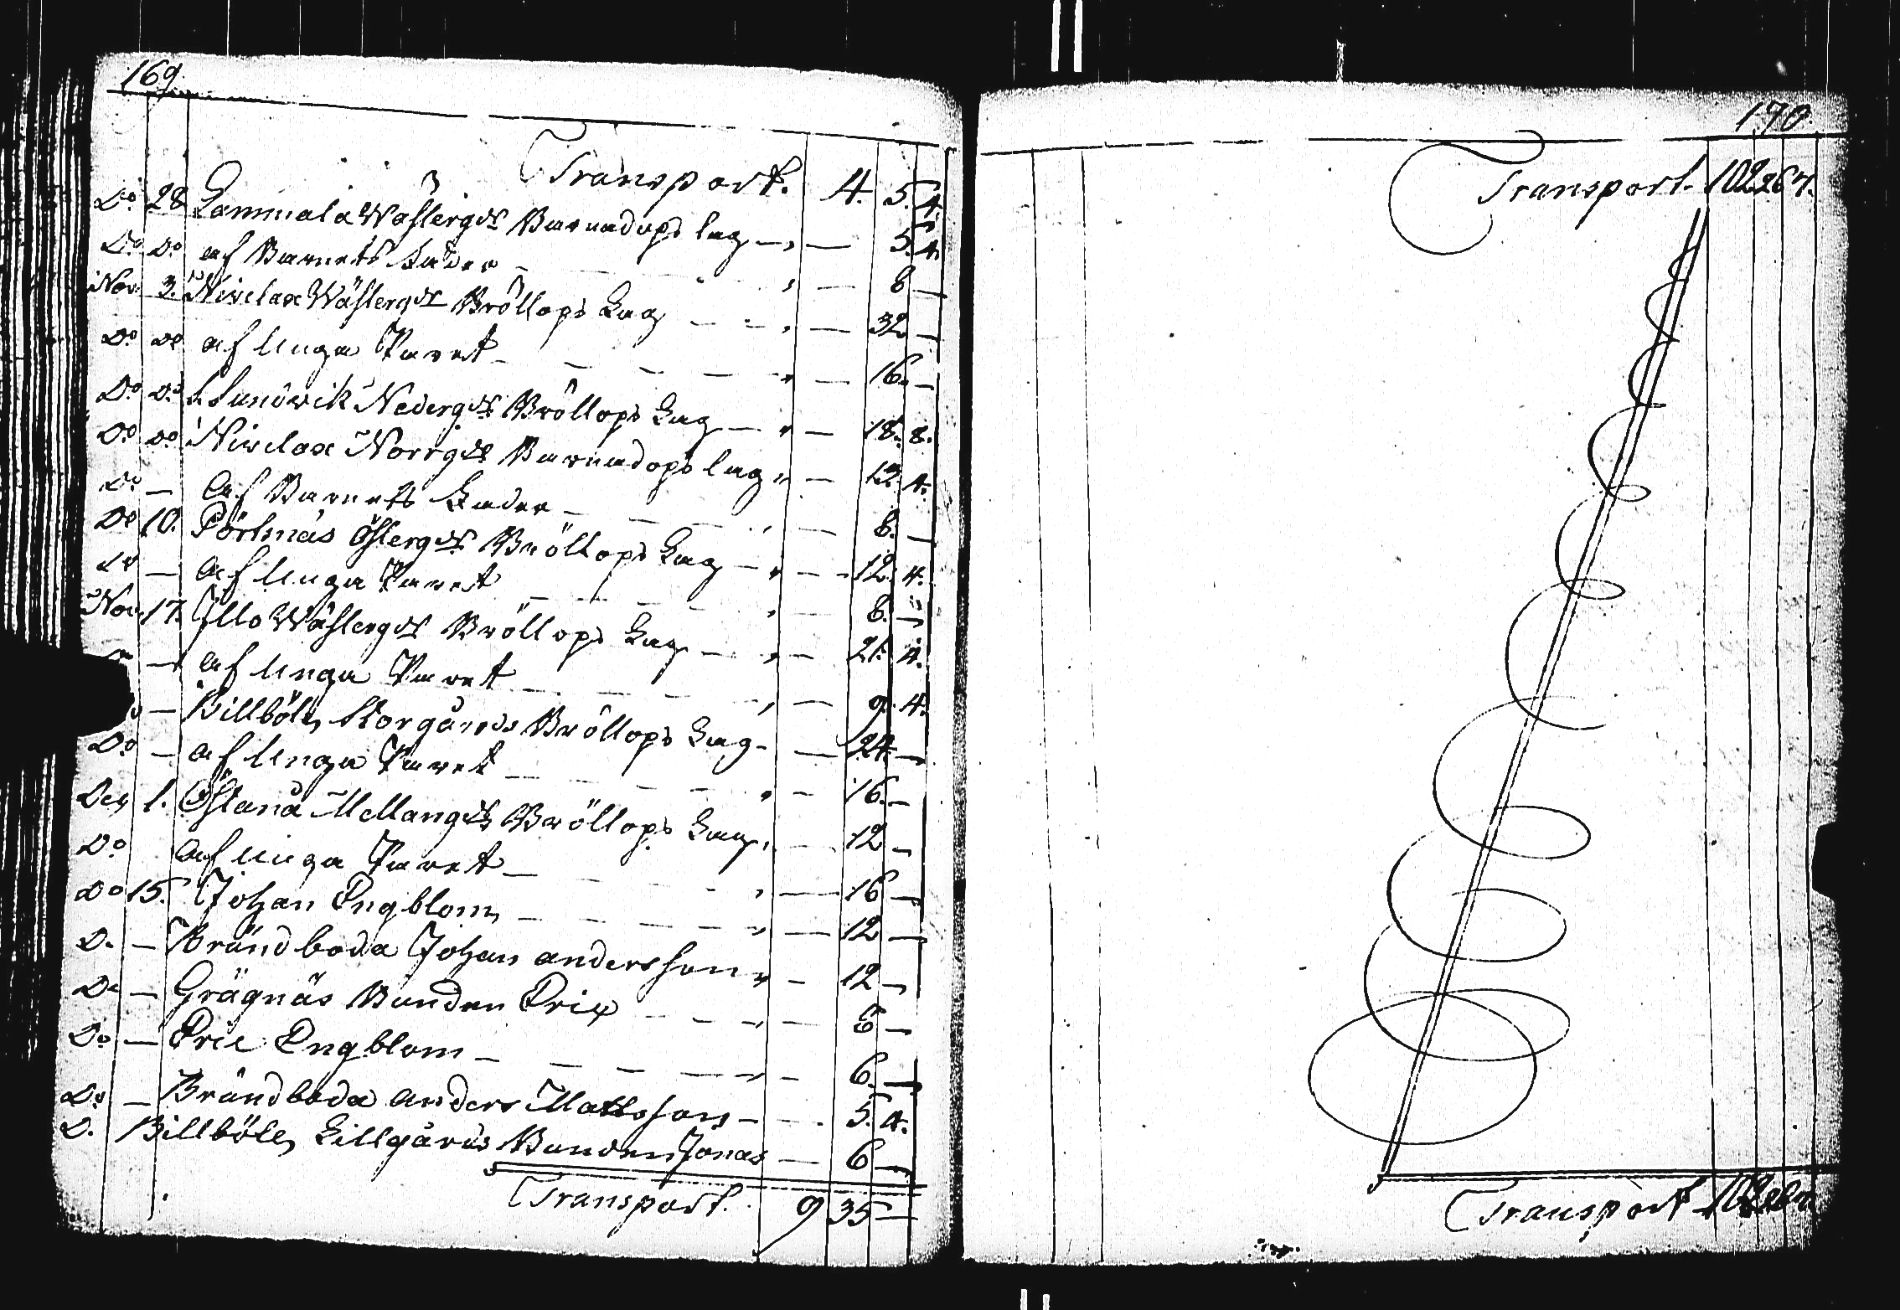 169
Transport. 4. 5. 4.
Do 28 Gammala Wästergds Barnadops lag — 5. 4.
Do Do af Barnets Fader — 8 —
Nov 3. Nixlax Wästergds Bröllops Lag — 32 —
Do Do af Unga Paret — 16. —
Do Do L Sundvik Nedergds Bröllops Lag — 18. 8.
Do Do Nixlax Norrgds Barnadops lag — 13. 4.
Do — af Barnets Fader — 8. —
Do 10. Pörtnäs Östergds Bröllops Lag — 12. 4.
Do — af Unga Paret — 8. —
Nov 17. Jllo Wästergds Bröllops Lag — 21. 4.
— af Unga Paret — 9. 4.
— Billböle Storgårds Bröllops Lag — 24. —
Do — af Unga Paret — 16. —
Dec 1. Östanå Mellangds Bröllops Lag. 12 —
Do af Unga Paret — 16 —
Do 15. Johan Engblom — 12 —
D. — Brändboda Johan andersson — 12 —
Do — Grägnäs Bonden Eric — 6 —
Do — Eric Engblom — 6. —
Do — Brändboda anders Mattsson — 5. 4.
D. Billböle Lillgårds Bonden Jonas — 6 —
Transport. 9 35 —
170
Transport. 102267.
Transport